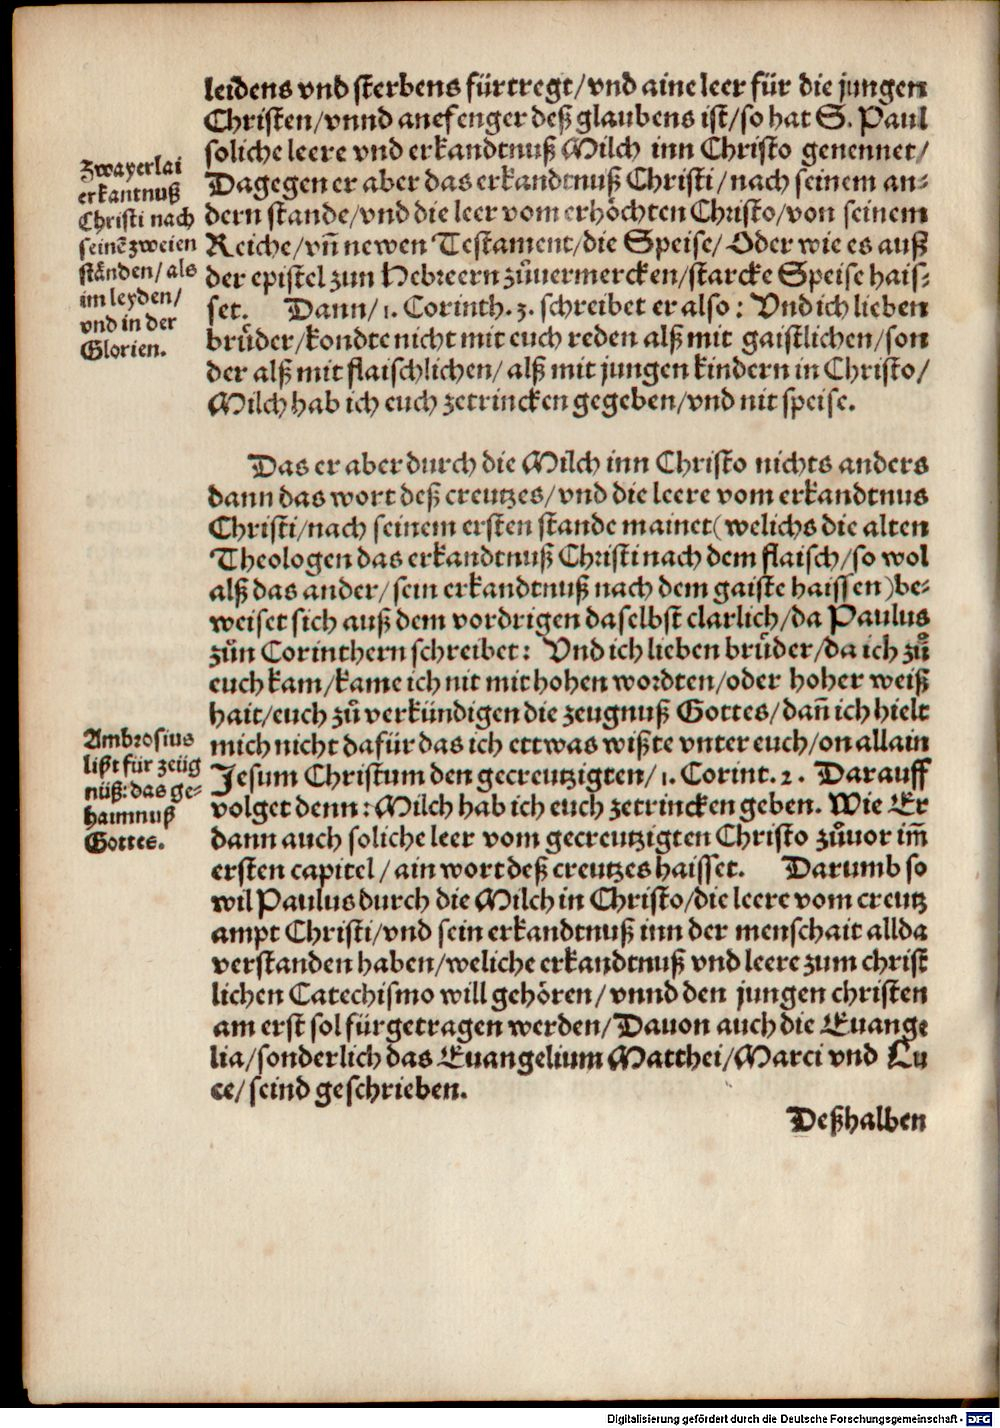 leidens vnd sterbens fürtregt/vnd aine leer für die jungen
Christen/vnnd anefenger deß glaubens ist/so hat S. Paul
soliche leere vnd erkandtnuß Milch inn Christo genennet/
Dagegen er aber das erkandtnuß Christi/nach seinem an⸗
dern stande/vnd die leer vom erhöchten Christo/von seinem
Reiche/vn̄ newen Testament/die Speise/Oder wie es auß
der epistel zun Hebreern zůuermercken/starcke Speise hais⸗
set. Dann/1. Corinth. 3. schreibet er also: Vnd ich lieben
brůder/kondte nicht mit euch reden alß mit gaistlichen/son
der alß mit flaischlichen/alß mit jungen kindern in Christo/
Milch hab ich euch zetrincken gegeben/vnd nit speise.
Zwayerlai
erkantnuß
Christi nach
seinē zweien
ständen/als
im leyden/
vnd in der
Glorien.
Das er aber durch die Milch inn Christo nichts anders
dann das wort deß creutzes/vnd die leere vom erkandtnus
Christi/nach seinem ersten stande mainet(welichs die alten
Theologen das erkandtnuß Christi nach dem flaisch/so wol
alß das ander/sein erkandtnuß nach dem gaiste haissen)be⸗
weiset sich auß dem vordrigen daselbst clarlich/da Paulus
zůn Corinthern schreibet: Vnd ich lieben brůder/da ich zů
euch kam/kame ich nit mit hohen wordten/oder hoher weiß
hait/euch zů verkündigen die zeugnuß Gottes/dan̄ ich hielt
mich nicht dafür das ich ettwas wißte vnter euch/on allain
Jesum Christum den gecreutzigten/1. Corint. 2. Darauff
volget denn: Milch hab ich euch zetrincken geben. Wie Er
dann auch soliche leer vom gecreutzigten Christo zůuor im̄
ersten capitel/ain wort deß creutzes haisset. Darumb so
wil Paulus durch die Milch in Christo/die leere vom creutz
ampt Christi/vnd sein erkandtnuß inn der menschait allda
verstanden haben/weliche erkandtnuß vnd leere zum christ
lichen Catechismo will gehören/vnnd den jungen christen
am erst sol fürgetragen werden/Dauon auch die Euange
lia/sonderlich das Euangelium Matthei/Marci vnd Lu
ce/seind geschrieben.
Ambrosius
lißt für zeüg
nüß: das ge⸗
haimnuß
Gottes.
Deßhalben
Digitalisierung gefördert durch die Deutsche Forschungsgemeinschaft - DFG